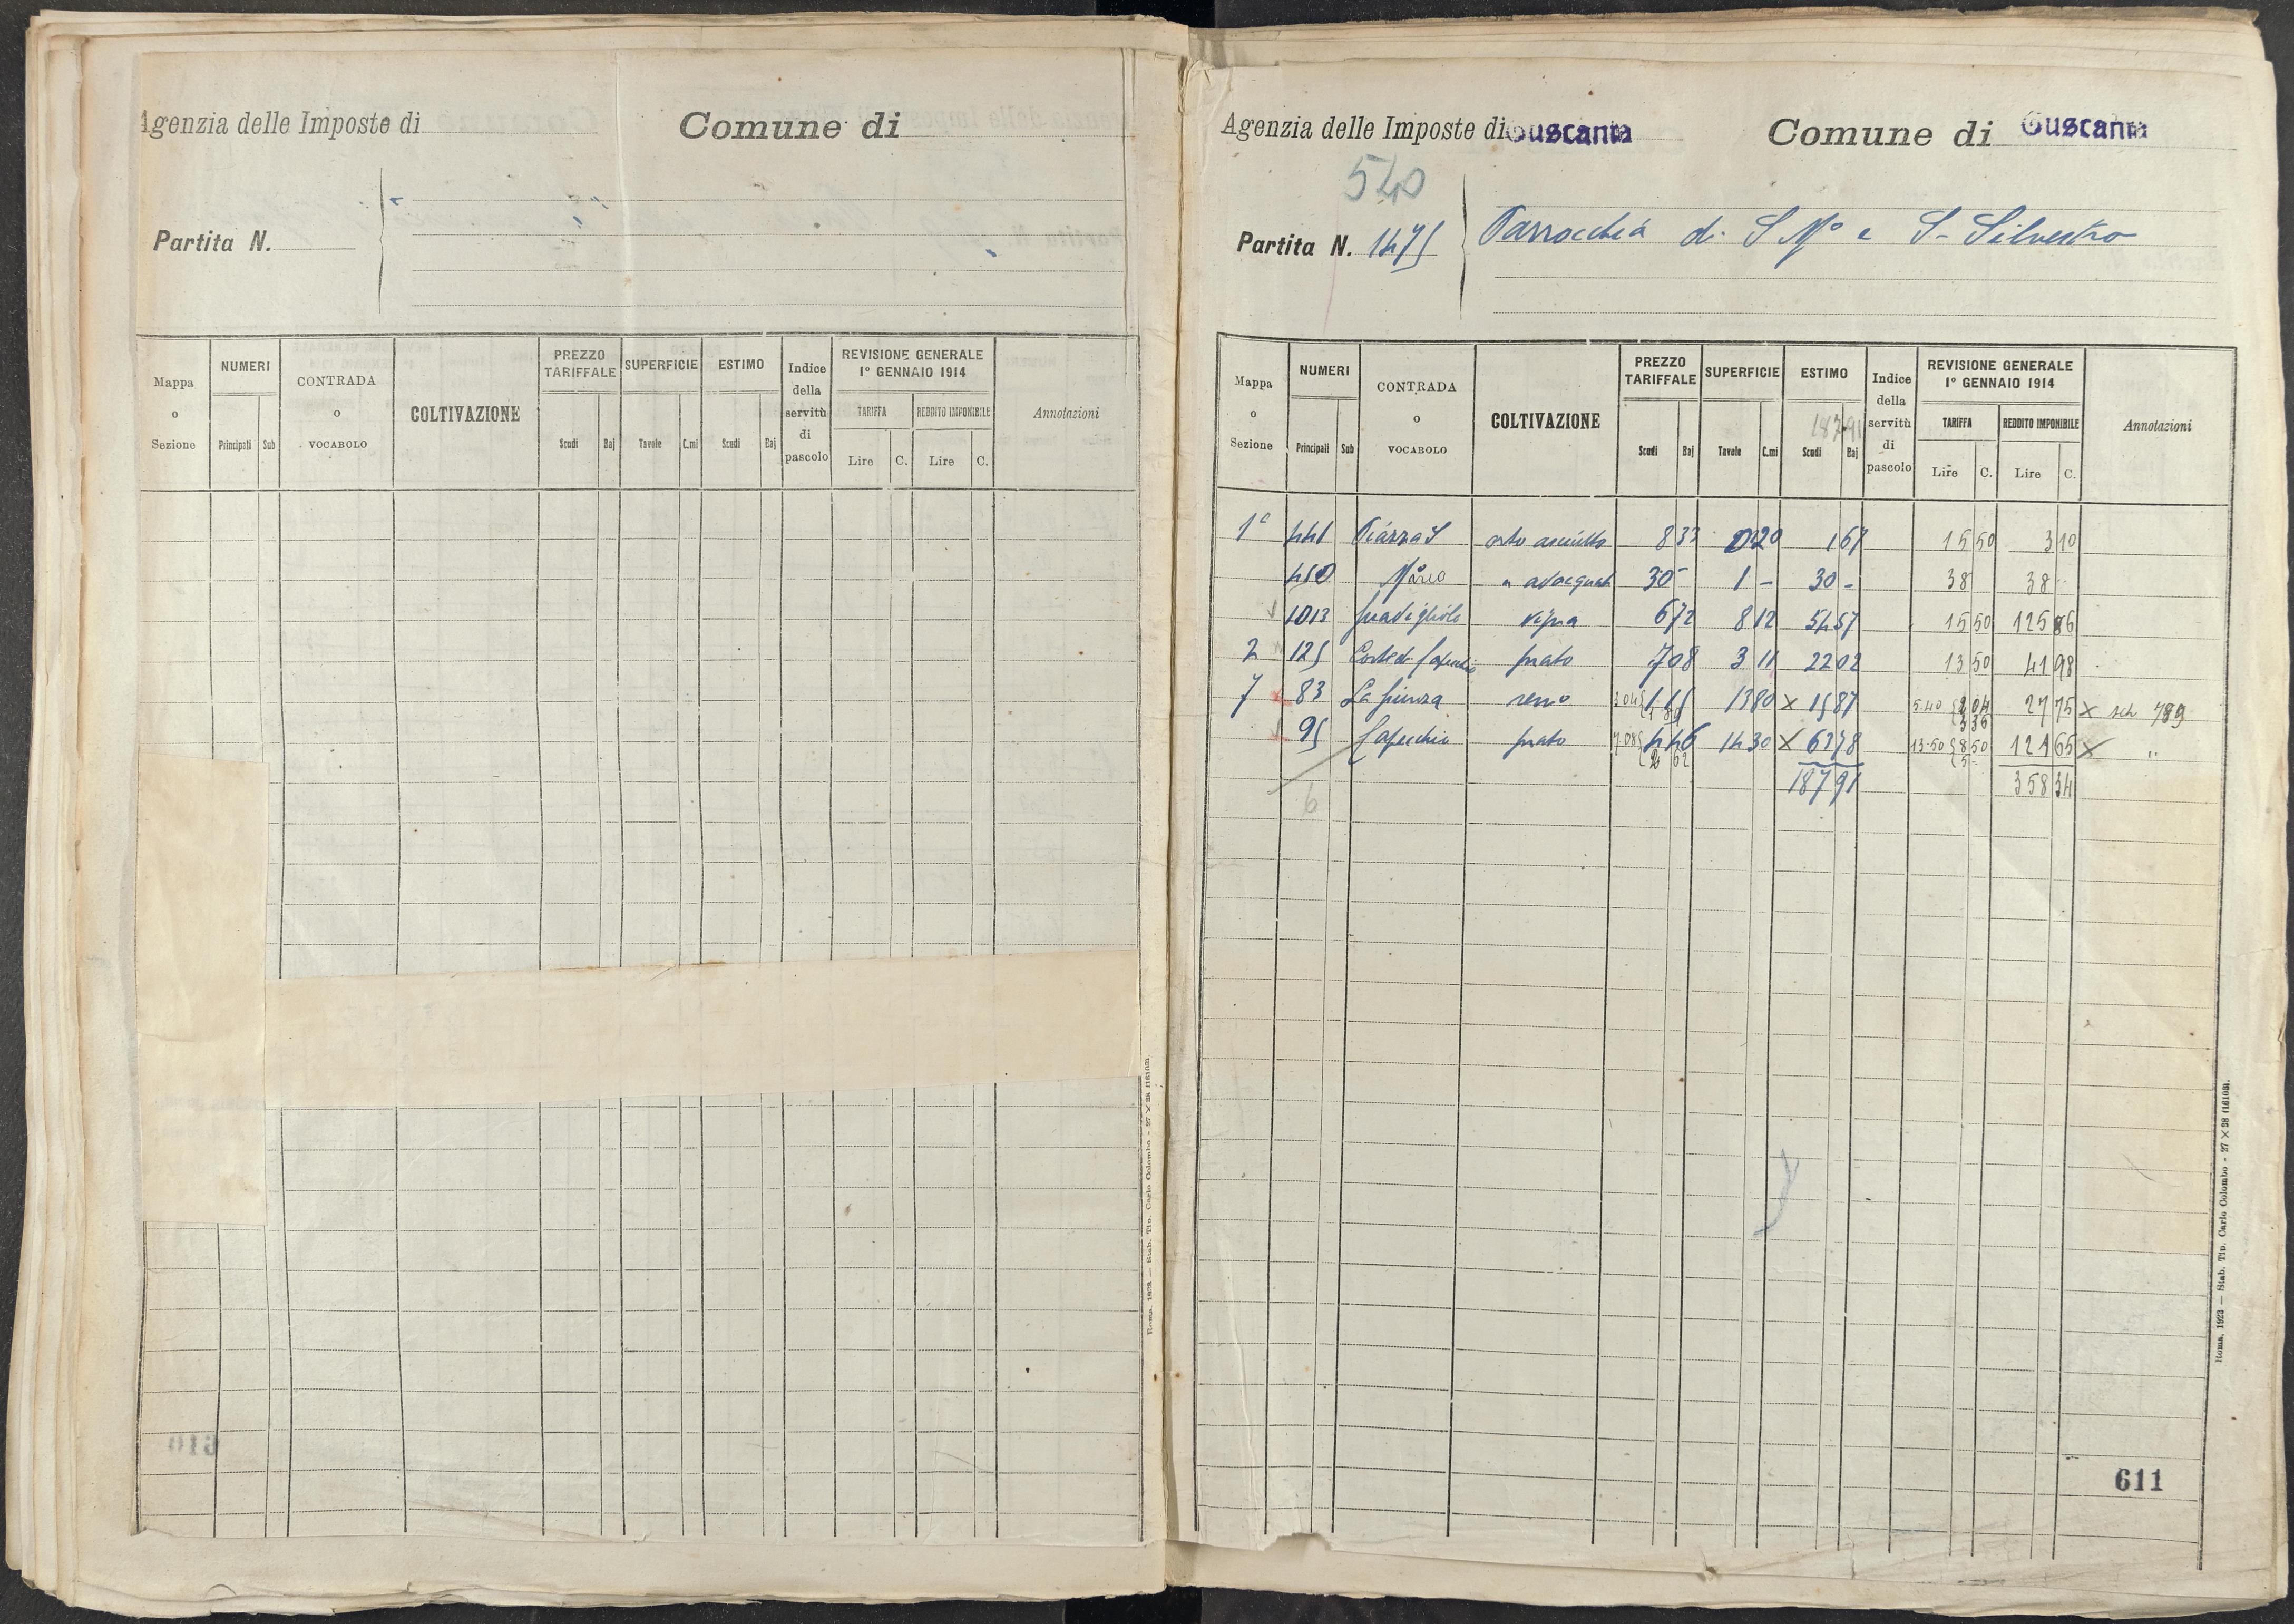 Agenzia delle Imposte di
Comune di
Partita N.
Mappa o Sezione
NUMERI
Principali Sub
CONTRADA o VOCABOLO
COLTIVAZIONE
PREZZO TARIFFALE
Scudi Baj
SUPERFICIE
Tavole C.mi
ESTIMO
Scudi Baj
Indice della servitù di pascolo
REVISIONE GENERALE
1° GENNAIO 1914
TARIFFA
Lire C.
REDDITO IMPONIBILE
Lire C.
Annotazioni
610
Roma, 1923 — Stab. Tip. Carlo Colombo - 27 × 38 (1610)m.
Agenzia delle Imposte di Tuscania
Comune di Tuscania
540
Partita N. 1475
Parrocchia di S Mº e S. Silvestro
Mappa o Sezione
NUMERI
Principali Sub
CONTRADA o VOCABOLO
COLTIVAZIONE
PREZZO TARIFFALE
Scudi Baj
SUPERFICIE
Tavole C.mi
ESTIMO
187 91
Scudi Baj
Indice della servitù di pascolo
REVISIONE GENERALE
1° GENNAIO 1914
TARIFFA
Lire C.
REDDITO IMPONIBILE
Lire C.
Annotazioni
1ª 441 Piazza S orto asciutto 8 33 0 20 1 67 15 50 3 10
450 Marco " adacquat 30 - 1 - 30 - 38 38
1013 vigna 6 72 8 12 54 57 15 50 125 86
2 125 prato 7 08 3 11 22 02 13 50 41 98
7 83 La sem 1 15 13 80 × 15 87 5.40 2 04 27 75 × sch 789
3 36
95 Capecchio prato 7.08 4 46 14 30 × 63 78 13.50 8 50 121 65 × "
2 62 5 -
187 91 358 34
6
611
Roma, 1923 — Stab. Tip. Carlo Colombo - 27 × 38 (1610)m.